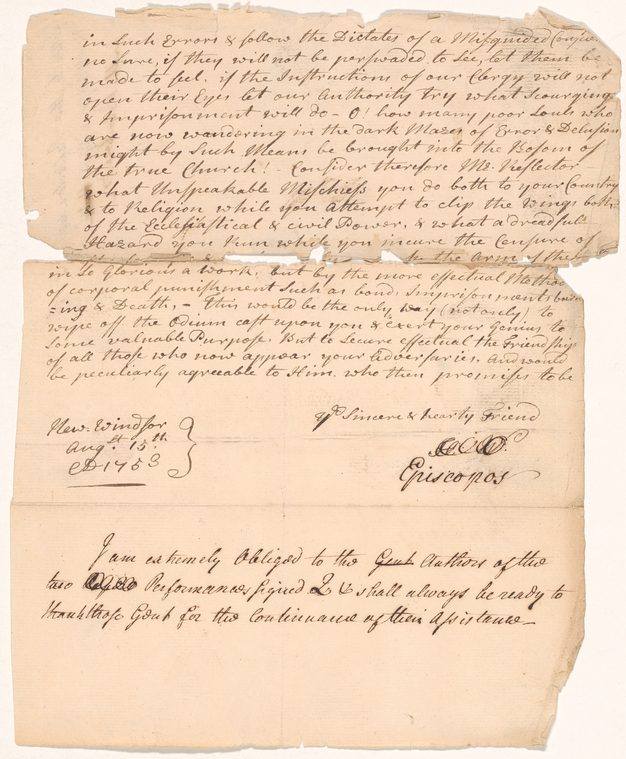 in such Errors & follow the Dictates of a Misguided
no Sure, if they will not be perswaded to See, let them be
made to feel. if the Instructions of our Clergy will not
open their Eyes let our Authority try what Scourging
& Imprisonment will do – O! how many poor Souls who
are now wandering in the dark Mazes of Error & Delusion
might by Such Means be brought into the Bosom of
the true Church! – Consider therefore Mr. Reflector
what Unspeakable Mischiefs you do both to your Country
& to Religion while you Attempt to clip the wings both
of the Ecclesiastical & civil Power. & what a dreadfull
Hazard you run while you incure the Censure of
the Arm of the
in So Glorious a work, but by the more effectual Method
of corporal punishment Such as bonds Imprisonments
=ing & Death, – this would be the only way (not only) to
wipe off the Odium cast upon you & exert your Genius to
Some valuable Purpose. But to Secure effectual the Friendship
of all those who now appear your Adversaries. And would
be peculiarly agreeable to Him who then promises to be
yr. Sincere & hearty Friend
New-Windsor
Augst. 15th.
AD 1753
Episcopos
I am extremely Obliged to the Gent Authors of the
two Performances Signed & shall always be ready to
thank those Gent for the Continuance of their Assistance –